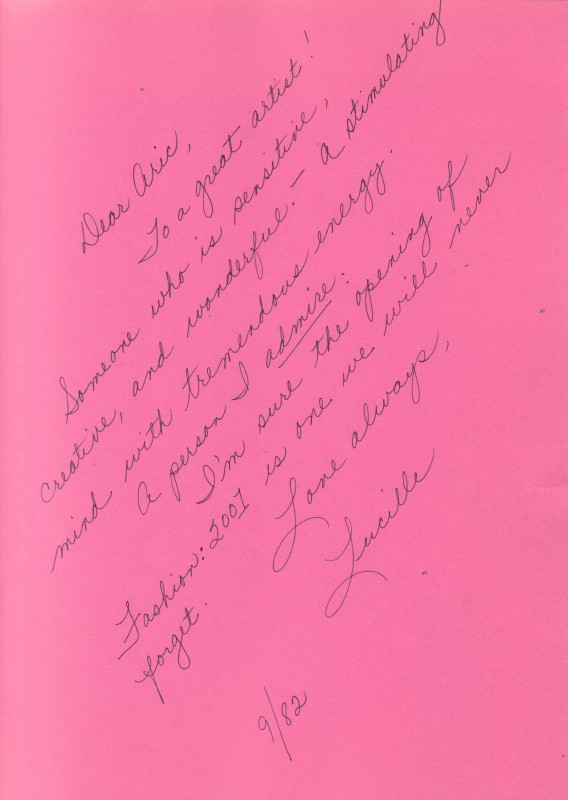 Dear Aric,
To a great artist!
Someone who is sensitive,
creative, and wonderful. — a stimulating
mind with tremendous energy.
A person I admire.
I'm sure the opening of
Fashion: 2001 is one we will never
forget.
Love always,
Lucille
9/82